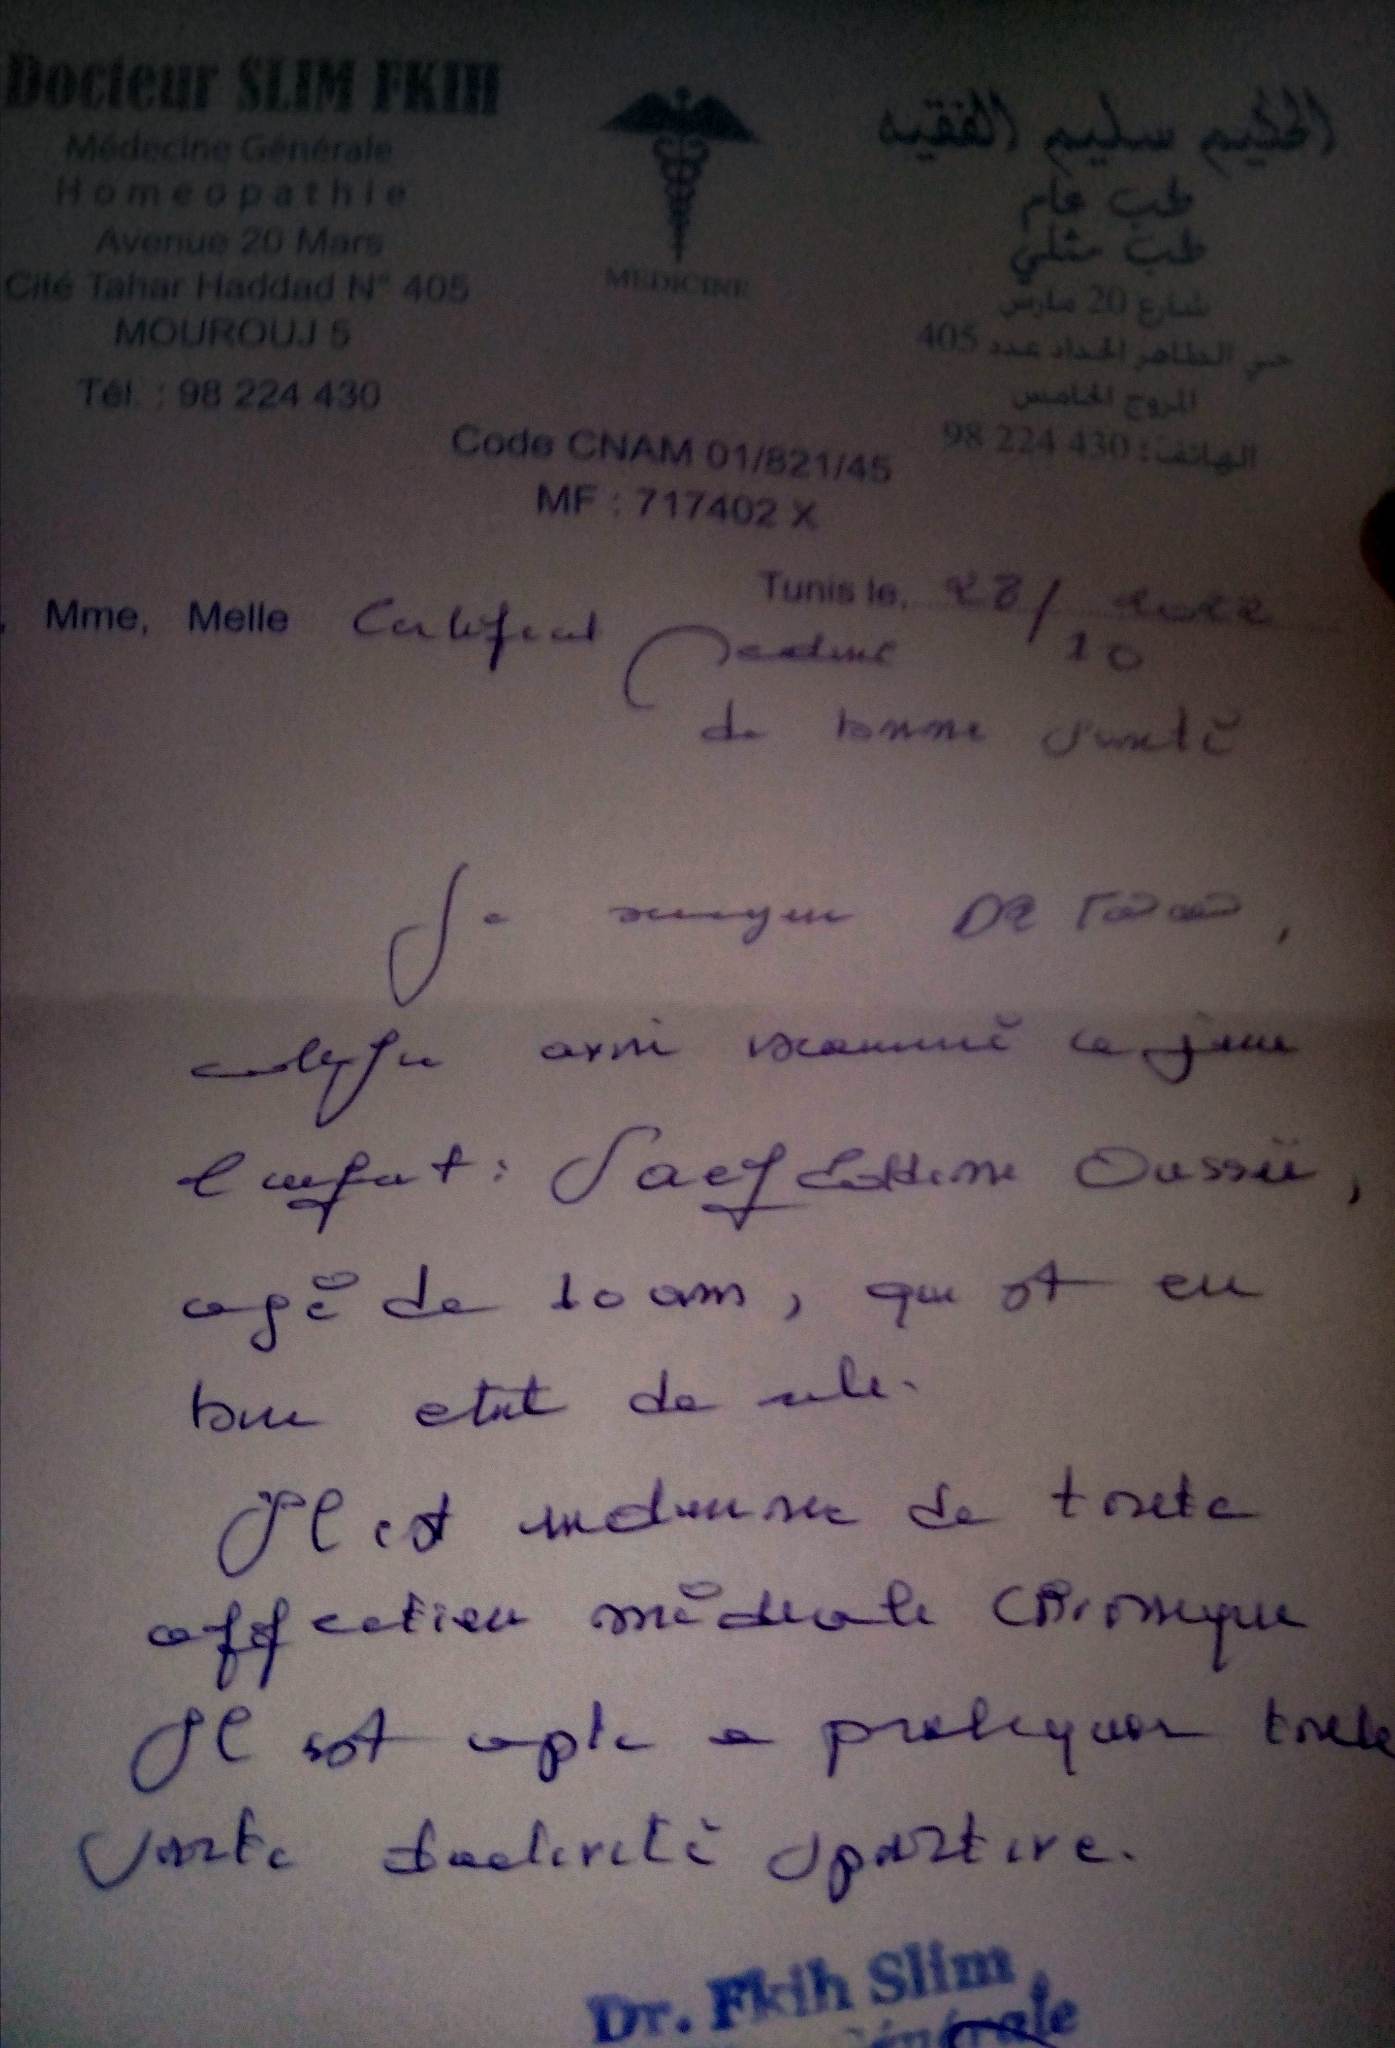 Docteur SLIM FKIH
Médecine Générale
Homeopathie
Avenue 20 Mars
Cité Tahar Haddad N° 405
MOUROUJ 5
Tél. : 98 224 430
MEDICINE
الحكيم سليم الفقيه
طب عام
طب مثلي
شارع 20 مارس
حي الطاهر الحداد عدد 405
المروج الخامس
الهاتف: 430 224 98
Code CNAM 01/821/45
MF : 717402 X
Tunis le, 28/10 2022
Mme, Melle Certificat
de bonne santé
Je
certifie avoir examiné ce jour
l'enfant : Saef Eddine
agé de 10 ans, qui est en
bon etat de
Il est indemne de toute
affection médicale chronique
Il est apte a pratiquer toute
sorte d'activité sportive.
Dr. Fkih Slim
Générale